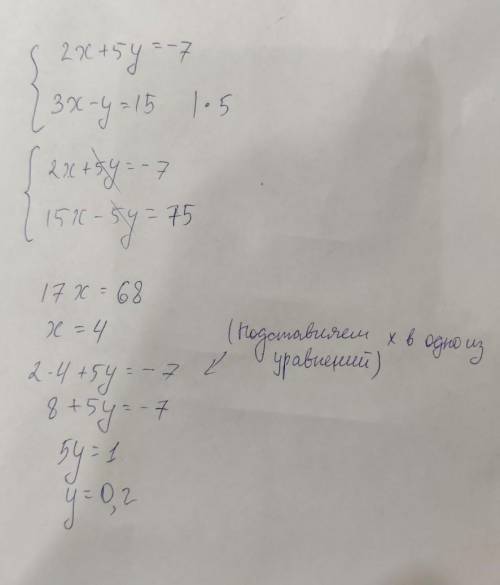 2x+5y=-7
3x-y=15 |·5
2x+5y=-7
15x-5y=75
17x=68
x=4
(подставляем x в одно из
уравнений)
2·4+5y=-7
8+5y=-7
5y=1
y=0,2